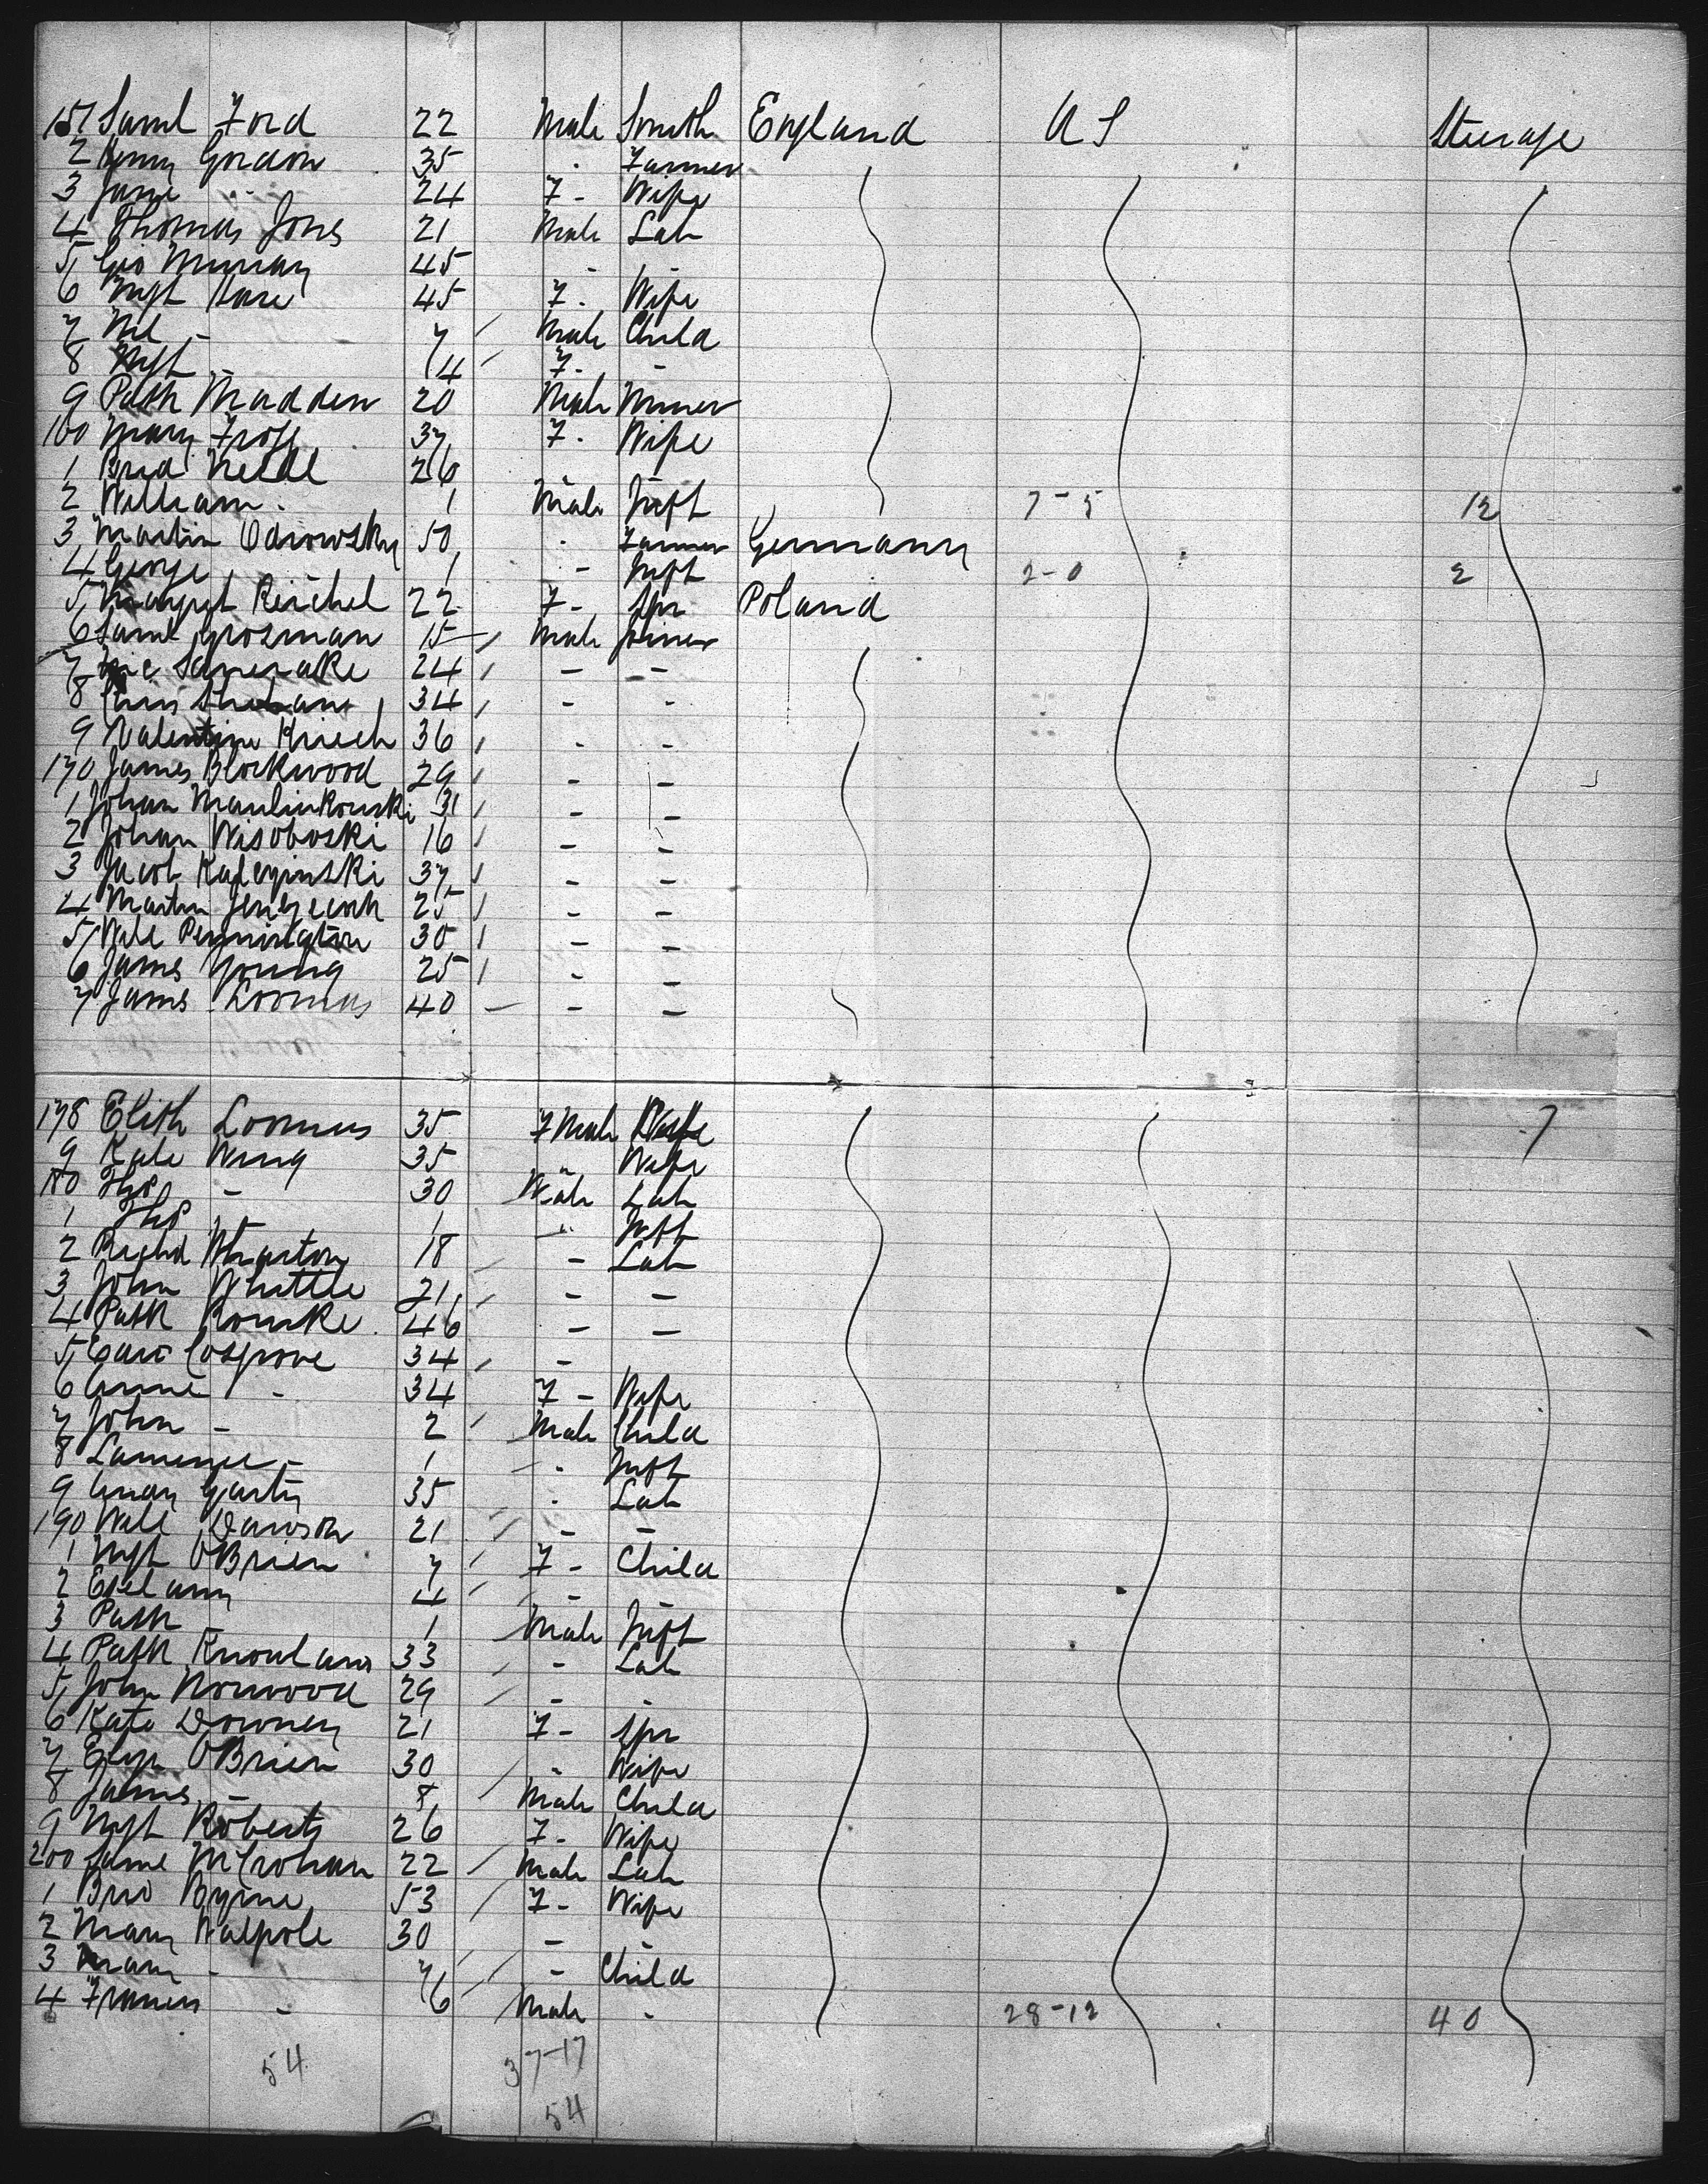 151 Saml Ford 22 Male Smith England U S Steerage
2 Henry Gordon 35 " Farmer
3 Jane - 24 F - Wife
4 Thomas Jones 21 Male Lab
5 Geo Murray 45 - -
6 Mgt Hare 45 F - Wife
7 Wil - 7 Male Child
8 Mgt - 4 F - -
9 Patk Madden 20 Male Miner
160 Mary Frost 37 F - Wife
1 Brid 26 - -
2 William - 1 Male Inft 7-5 12
3 Martin Odrowsky 50 - Farmer Germany
4 George 1 - Inft 2-0 2
5 Margrt Reichel 22 F - Spr Poland
6 Saml Grosman 15 - Male Joiner
7 24 - -
8 34 - -
9 Valentine Kirsch 36 - -
170 James Blockwood 29 - -
1 Johan Maulinkowski 31 - -
2 Johan Wisoboski 16 - -
3 Jacob 37 - -
4 Martin 25 - -
5 Will Pennington 30 - -
6 James Young 25 - -
7 James Loomus 40 - - -
178 Elith Loomus 35 F Male Wife 7
9 Kate Wing 35 " Wife
180 Ths - 30 Male Lab
1 Ths - 1 " Inft
2 Richd Wharton 18 - Lab
3 John Whittle 21 - -
4 Patk Rourke 46 - -
5 Edwd Cosgrove 34 -
6 Anne - 34 F - Wife
7 John - 2 Male Child
8 Lawrence - 1 - Inft
9 Andy Garty 35 - Lab
190 Will Dawson 21 - -
1 Mgt OBrien 7 F - Child
2 4 - -
3 Patk - 1 Male Inft
4 Patk Knowland 33 - Lab
5 John Norwood 29 - -
6 Kate Downey 21 F - Spr
7 Eliza OBrien 30 - Wife
8 James - 8 Male Child
9 Mgt Roberts 26 F - Wife
200 Jame McCrohan 22 Male Lab
1 Brid Byrne 53 F - Wife
2 Mary Walpole 30 - -
3 Mary - 7 - Child
4 Francis - 6 Male - 28-12 40
54 37-17
54